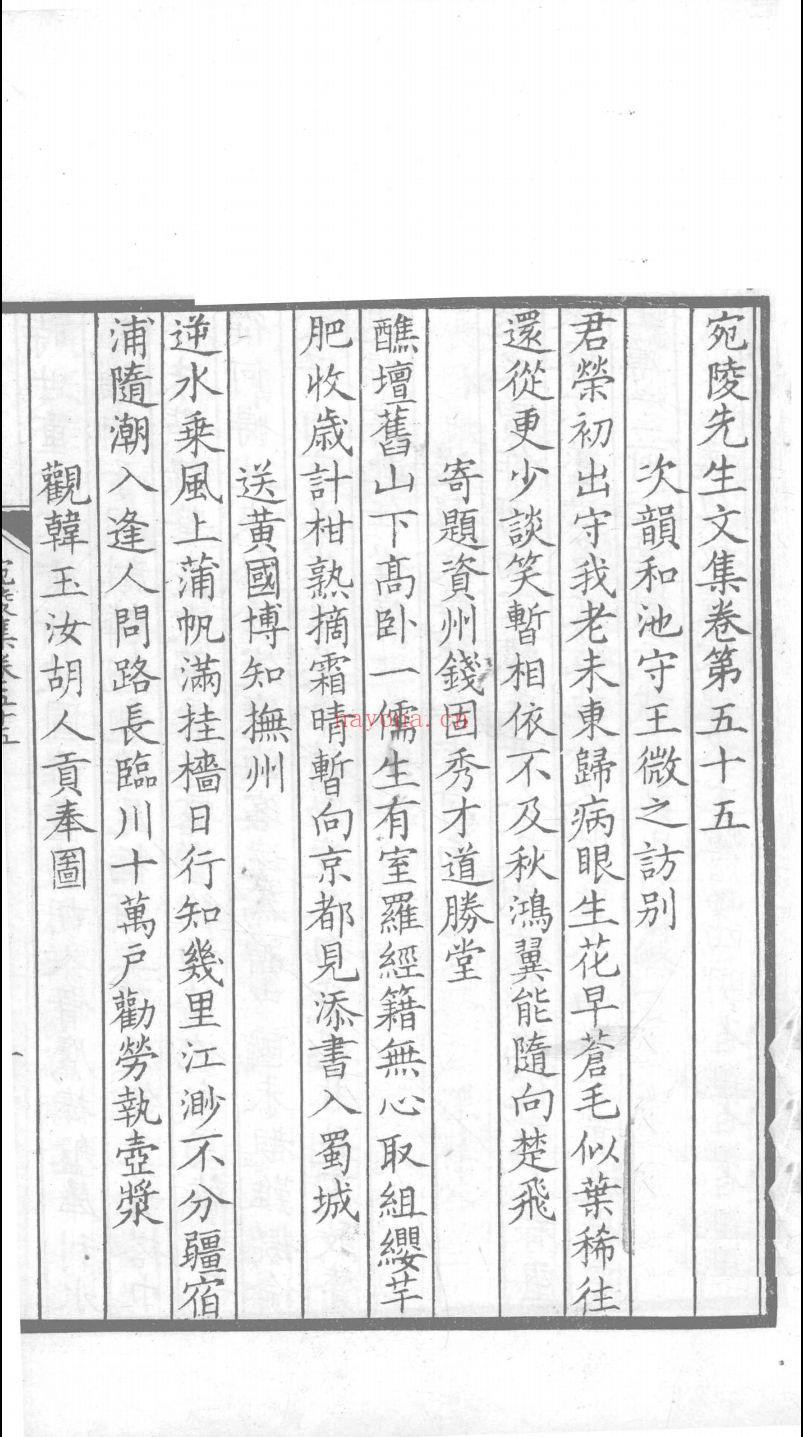 宛陵先生文集卷第五十五
次韻和池守王微之訪别
君榮初出守我老未東歸病眼生花早蒼毛似葉稀往
還從更少談笑暫相依不及秋鴻翼能隨向楚飛
寄題資州錢固秀才道勝堂
醮壇舊山下髙卧一儒生有室羅經籍無心取組纓芋
肥收歳計柑熟摘霜晴暫向京都見添書入蜀城
送黃國博知撫州
逆水乗風上蒲帆滿挂檣日行知幾里江渺不分疆宿
浦隨潮入逢人問路長臨川十萬戸勸勞執壺漿
觀韓玉汝胡人貢奉圖
宛陵集卷五十五
hayona.cn